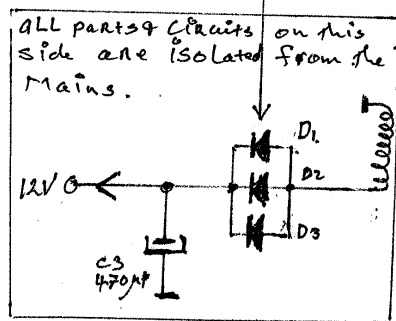 ALL parts& Circuits on this
side are isolated from the
Mains.
D1
12V
D2
D3
C3
470µf